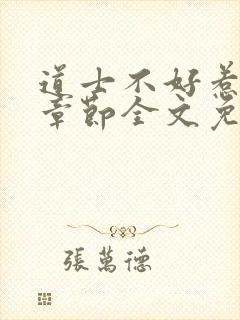 道士不好惹
章節全文免
張萬德